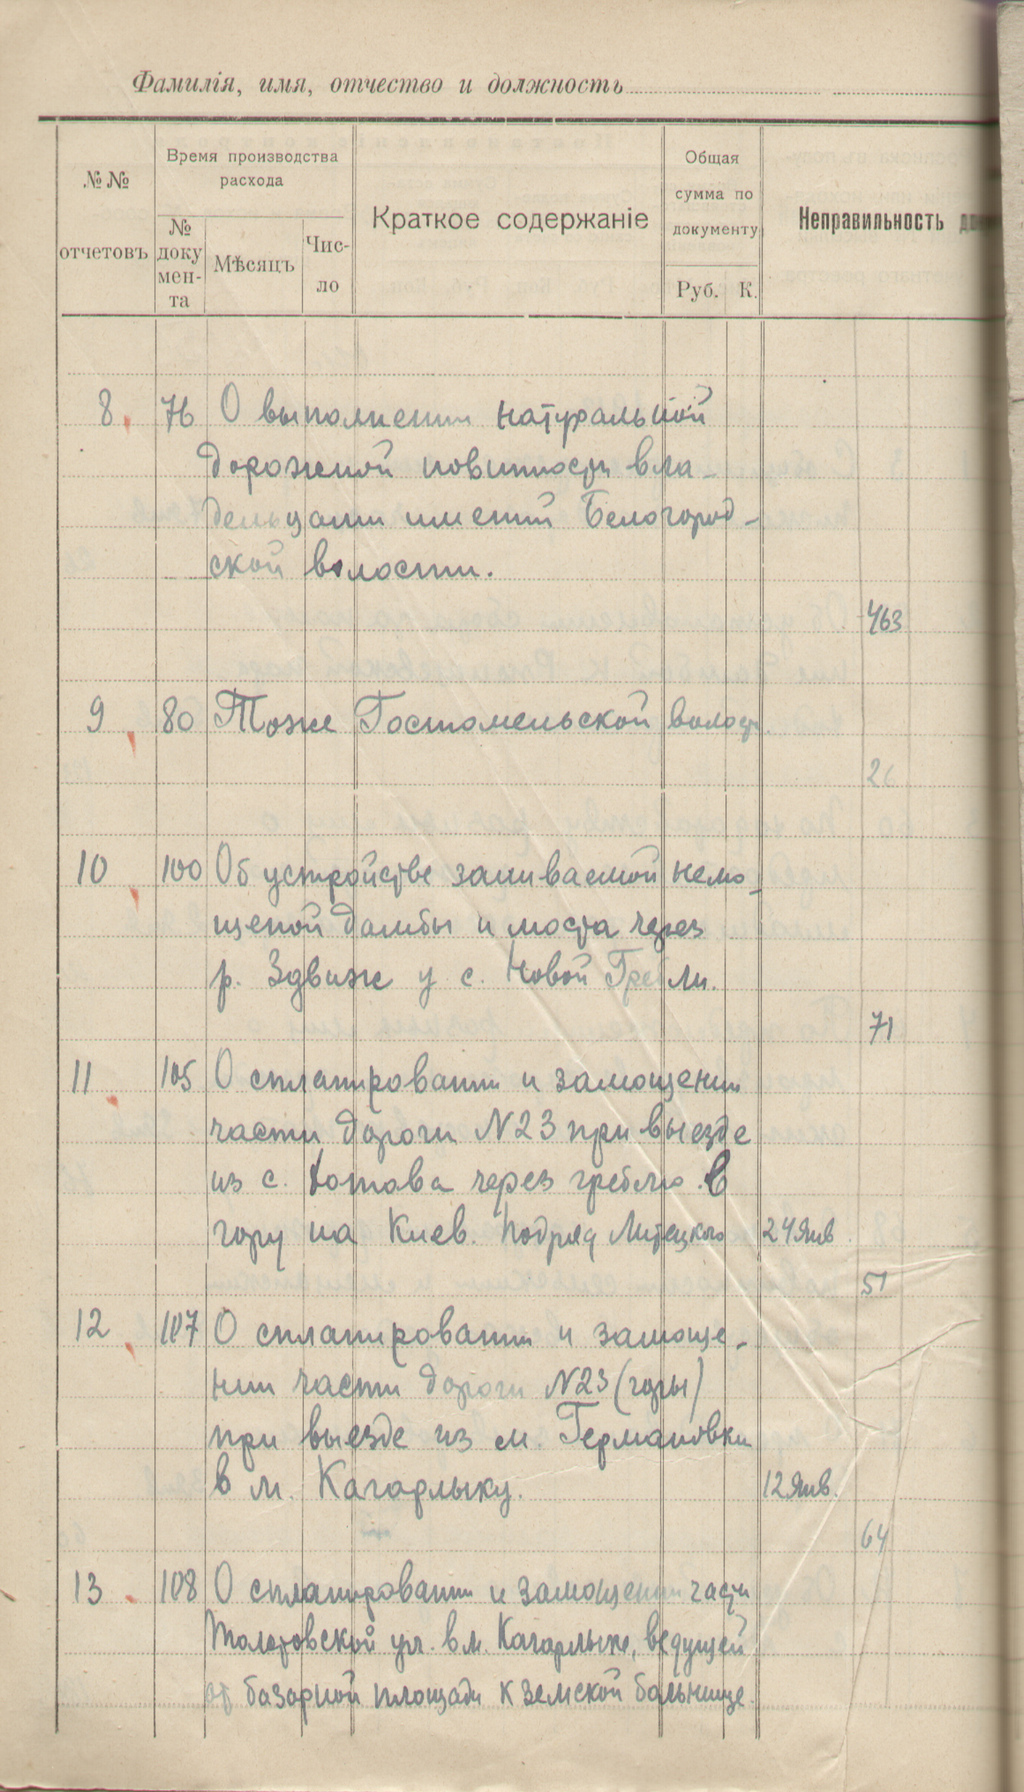 Фамилія, имя, отчество и должность
№№ отчетовъ
Время производства расхода
№ доку мен- та
Мѣсяцъ
Чис- ло
Краткое содержаніе
Общая сумма по документу
Руб. К.
Неправильность
8. 76 О выполнении натуральной
дорожной повинности вла-
дельцами имений Белогород-
ской волости.
463
9 80 Тоже Гостомельской волост
26
10 100 Об устройстве заливаемой немо-
щеной дамбы и моста через
р. Здвиж у с. Новой Гребли.
71
11 105 О спланировании и замощении
части дороги N23 при выезде
из с. Хотова через греблю в
гору на Киев. Подряд 24 Янв
51
12 107 О спланировании и замоще-
нии части дороги N23 (горы)
при выезде из м. Германовки
в м. Кагарлыку. 12 Янв.
64
13. 108 О спланировании и замощении части
ул. в м. Кагарлыке, ведущей
от базарной площади к земской больнице.